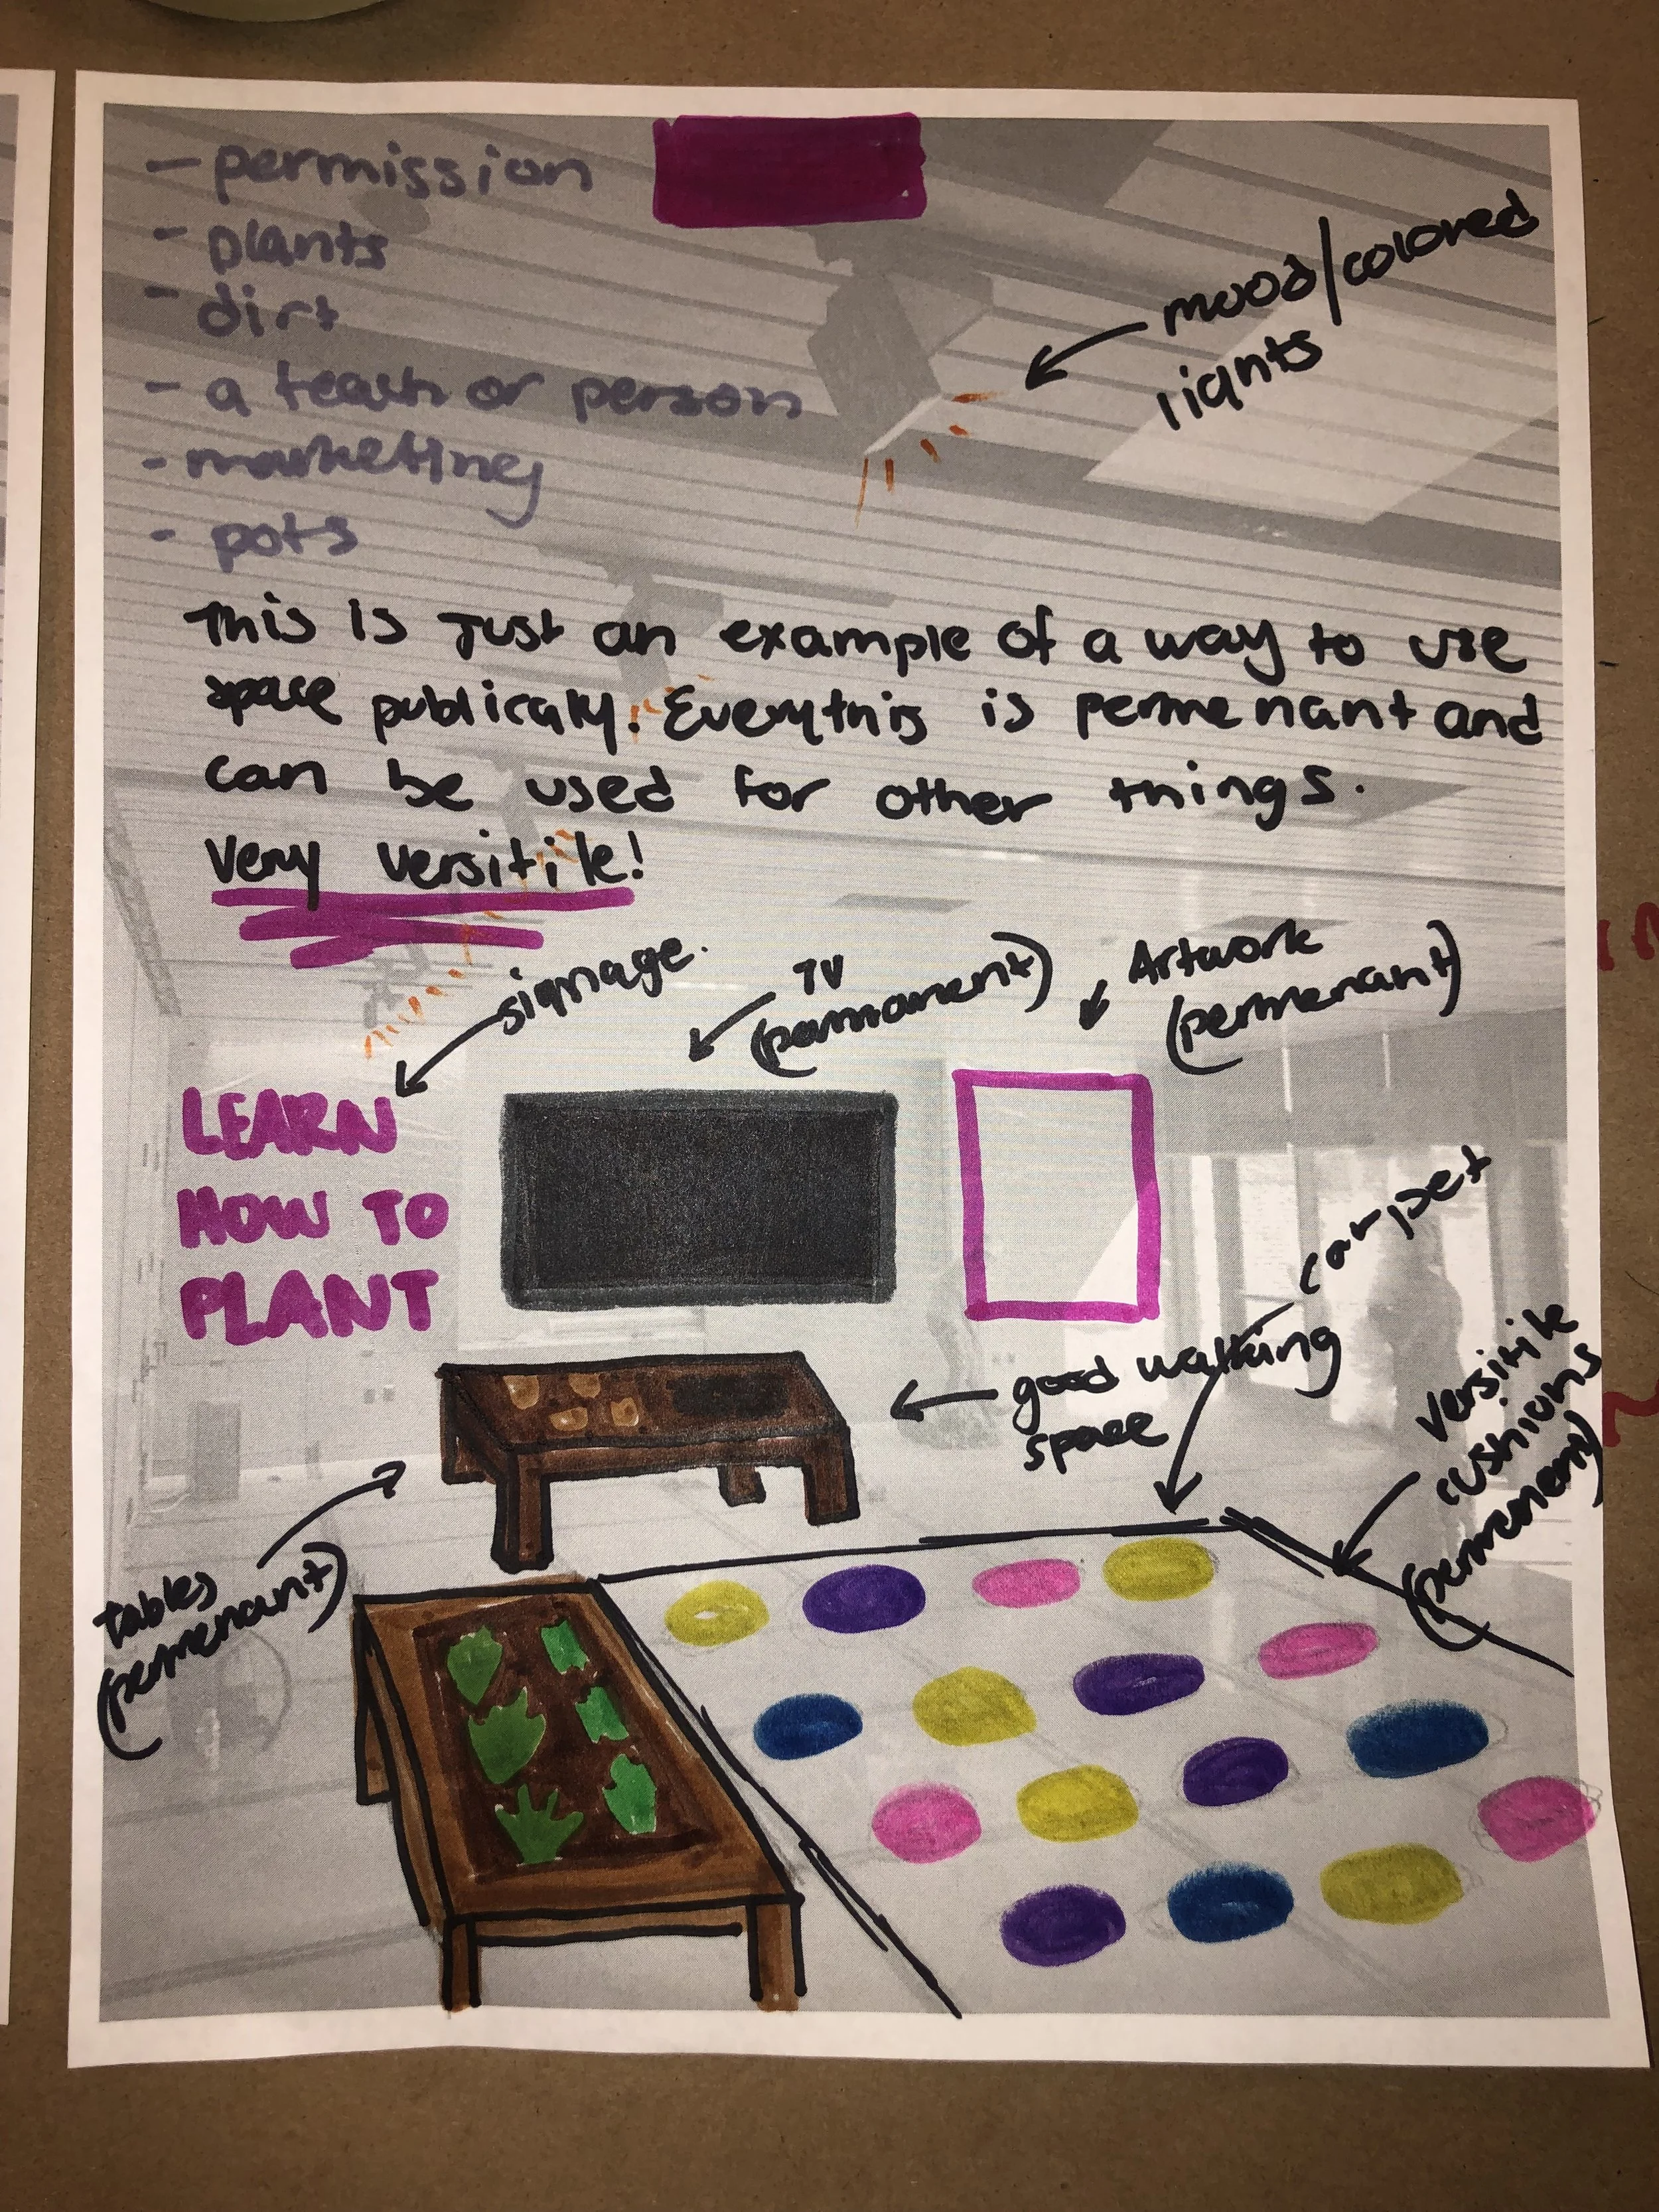 - permission
- plants
- dirt
- a teach or person
- marketing
- pots
mood/colored
lights
This is Just an example of a way to use
space publicaly. Everything is permenant and
can be used for other things.
Very versitile!
signage.
TV
(permanent)
Artwork
(permenant)
LEARN
HOW TO
PLANT
carpet
good walking
space
versitile
cushions
tables
(permenant)